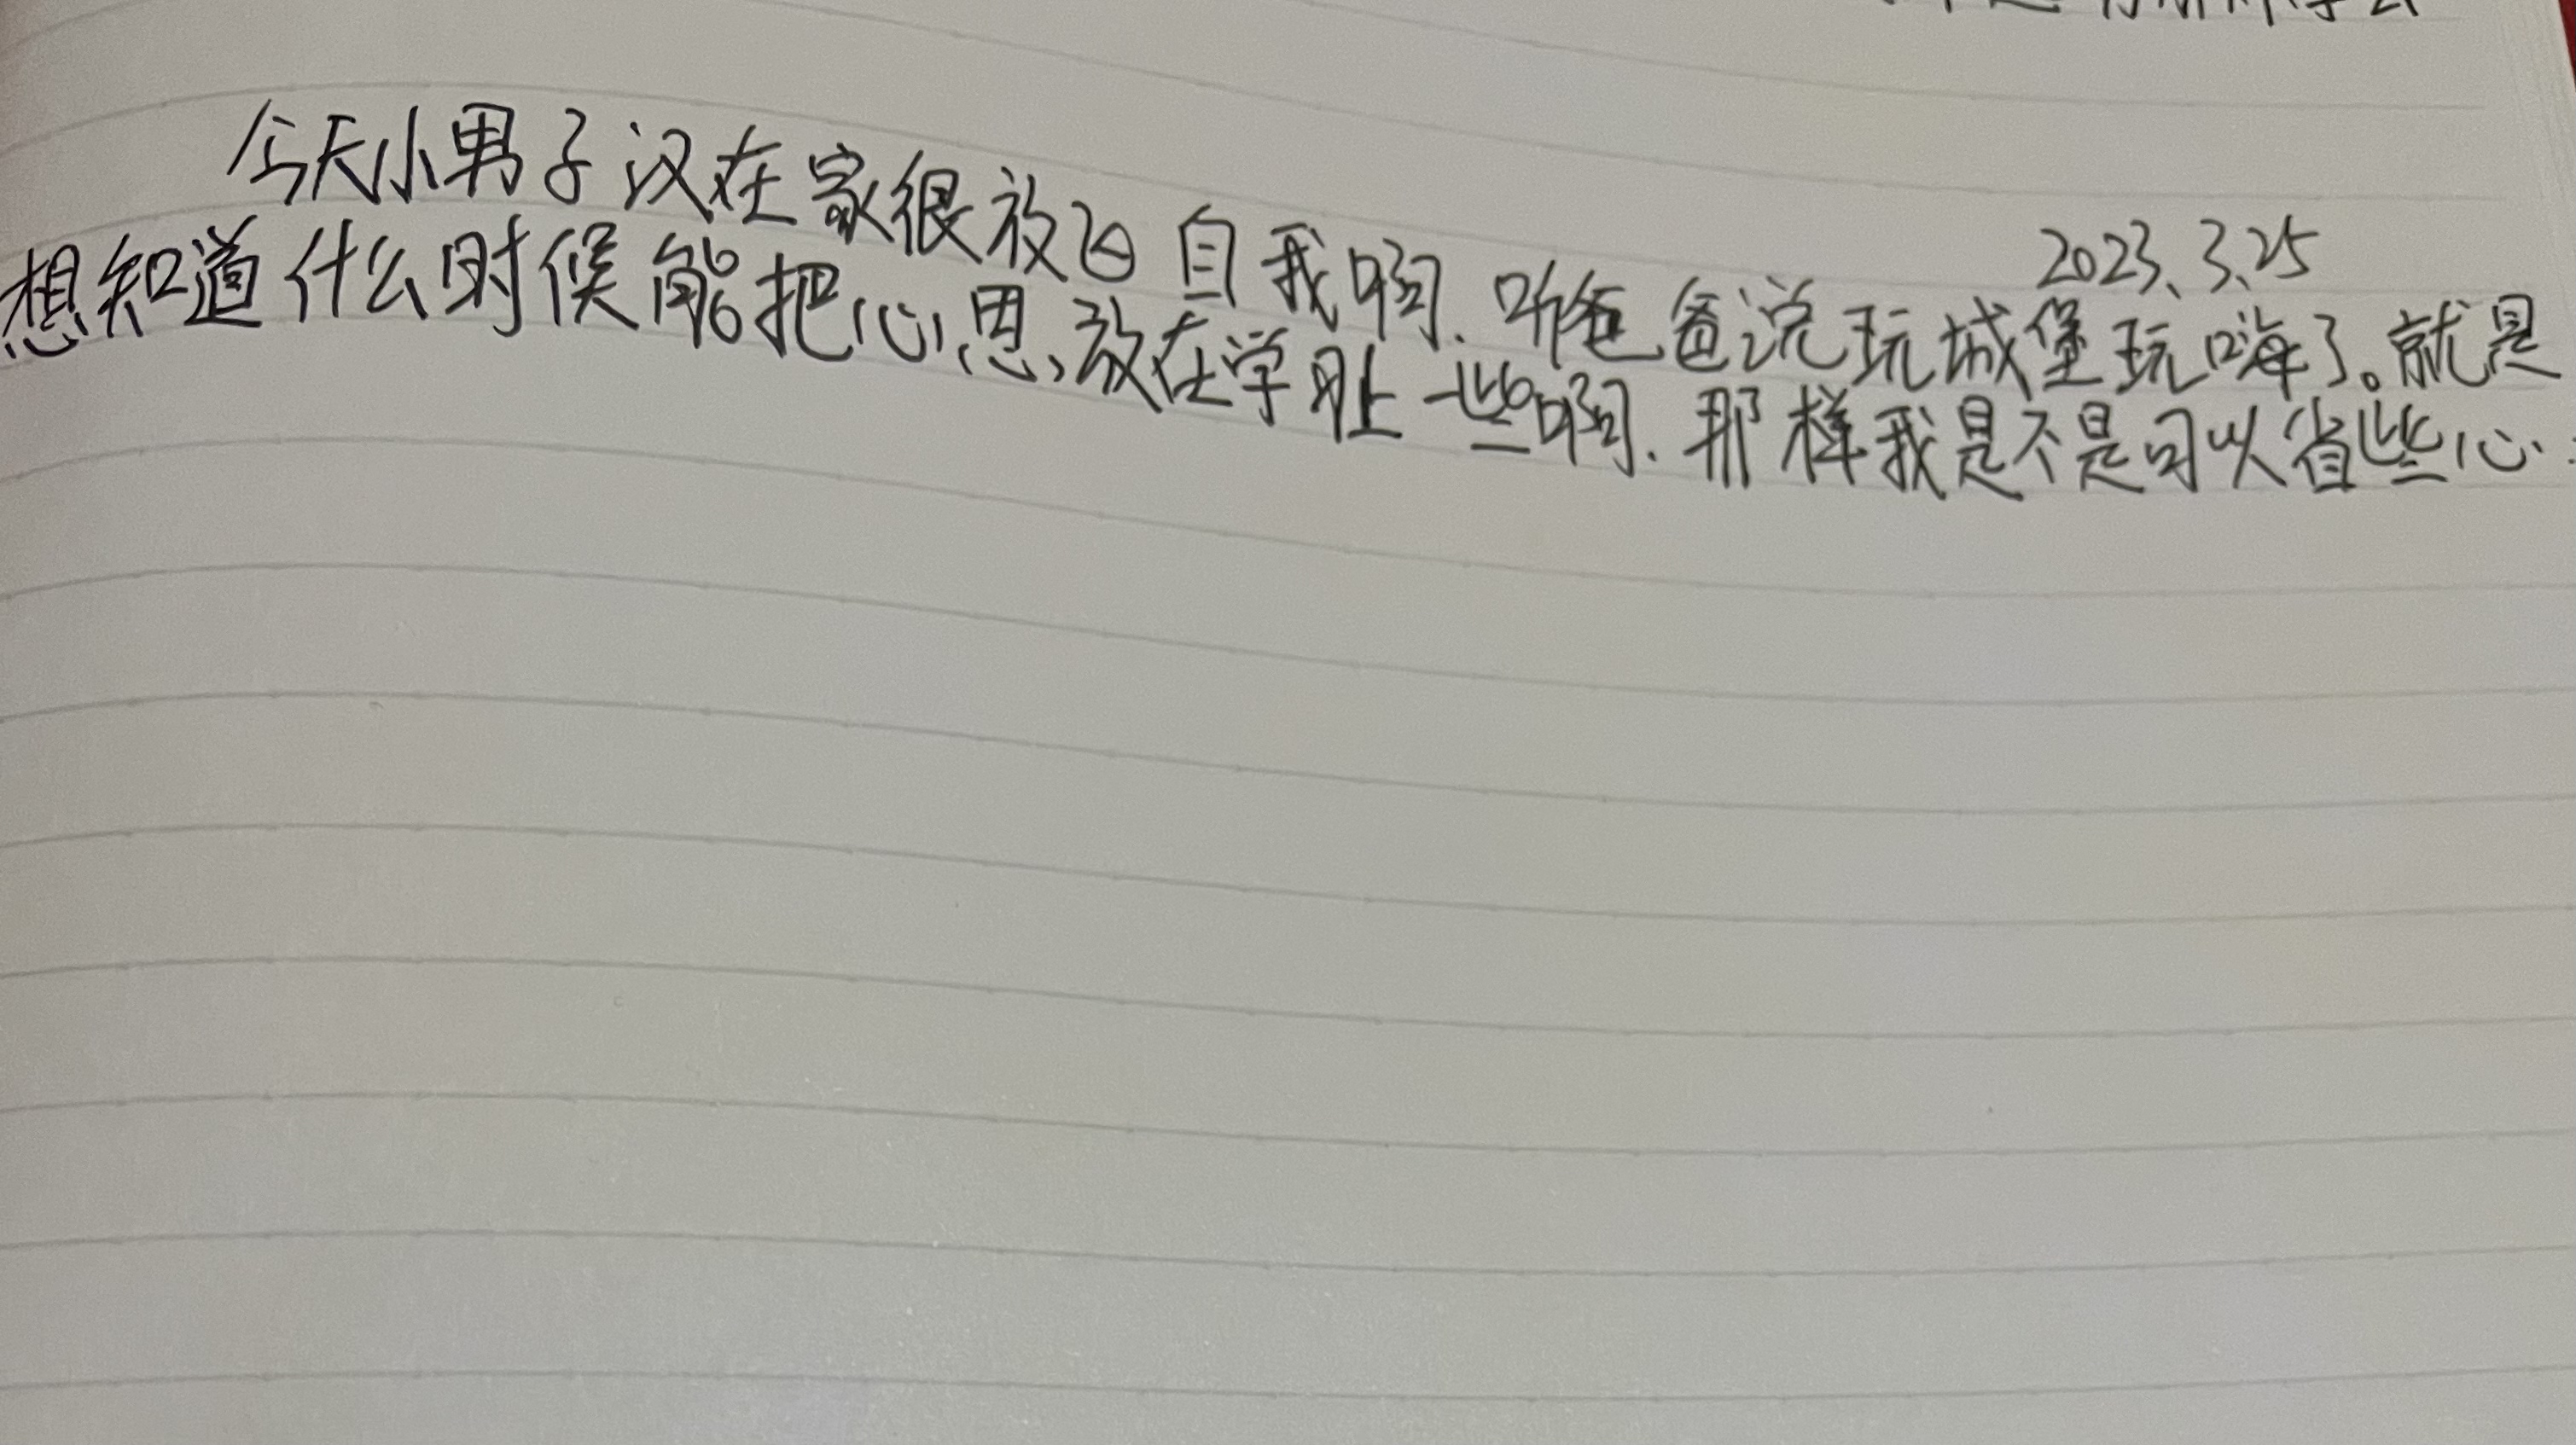 2023、3、25
今天小男子汉在家很放飞自我啊.听爸爸说玩城堡玩嗨了。就是
想知道什么时候能把心思放在学习上一些啊.那样我是不是可以省些心.